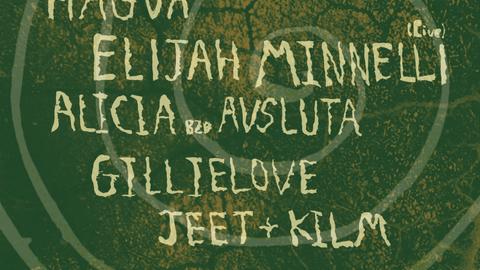 MAGVA
(Live)
ELIJAH MINNELLI
ALICIA B2B AVSLUTA
GILLIELOVE
JEET + KILM